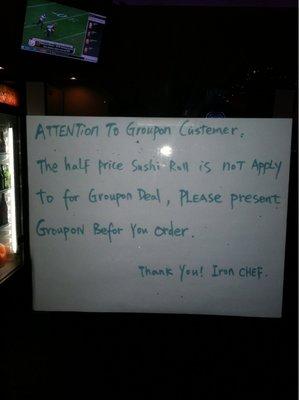 ATTENTION To GROUPON Customer.
The half price Sushi Roll is noT APPLY
To for GROUPON DEAL, PLEASE present
GROUPON Befor You ORDER.
Thank You! IRON CHEF.